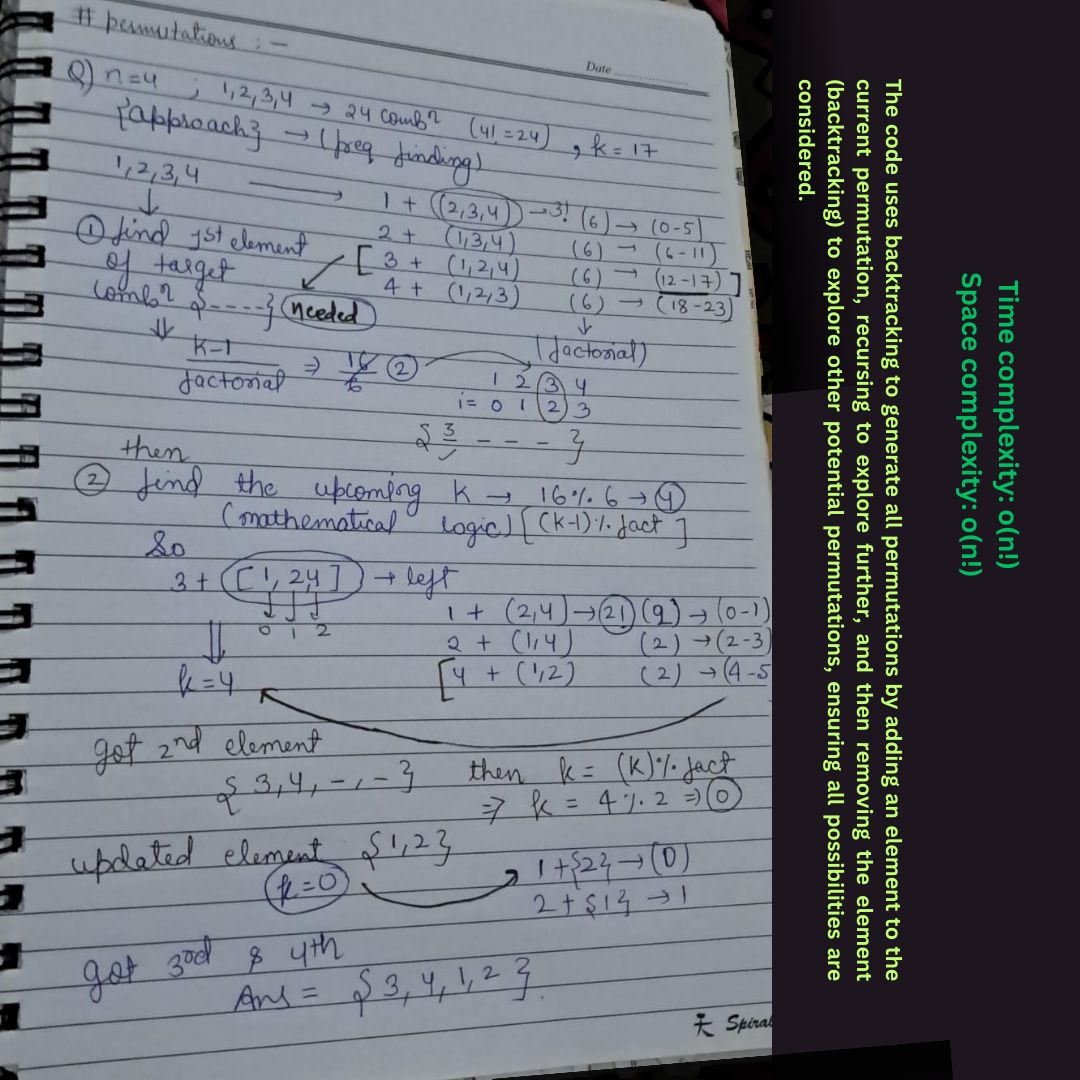 # permutations : —
Date
Q) n=4 ; 1,2,3,4 → 24 combn (4! = 24) , k = 17
{approach} → (freq finding)
1,2,3,4 → 1 + (2,3,4) → 3! (6) → (0-5)
2 + (1,3,4) (6) → (6-11)
[ 3 + (1,2,4) (6) → (12-17) ]
4 + (1,2,3) (6) → (18-23)
↓
(factorial)
① find 1st element
of target
combn {----} needed
⇓
k-1 / factorial ⇒ 16/6 ②
1 2 3 4
i= 0 1 2 3
{ 3 - - - }
then
② find the upcoming K → 16 % 6 → ④
(mathematical logic) [(k-1) % fact]
So
3 + [1, 24] → left
0 1 2
1 + (2,4) → 2! (2) → (0-1)
2 + (1,4) (2) → (2-3)
[ 4 + (1,2) (2) → (4-5
k=4
got 2nd element
{ 3,4, -, - } then k = (k) % fact
⇒ k = 4 % 2 ⇒ 0
updated element {1,2}
k=0
1 + {2} → (0)
2 + {1} → 1
got 3rd & 4th
Ans = { 3, 4, 1, 2 }.
Spiral
Time complexity: o(n!)
Space complexity: o(n!)
The code uses backtracking to generate all permutations by adding an element to the
current permutation, recursing to explore further, and then removing the element
(backtracking) to explore other potential permutations, ensuring all possibilities are
considered.